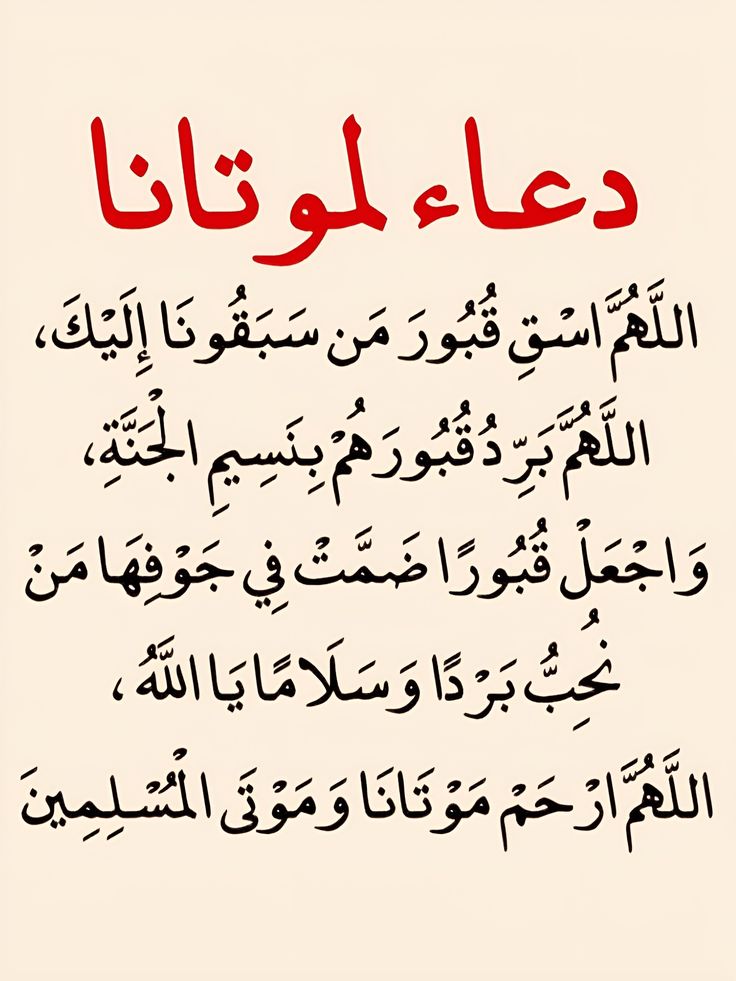 دعاء لموتانا
اللَّهُمَّ اسْقِ قُبُورَ مَن سَبَقُونَا إِلَيْكَ،
اللَّهُمَّ بَرِّدْ قُبُورَهُمْ بِنَسِيمِ الْجَنَّةِ،
وَاجْعَلْ قُبُورًا ضَمَّتْ فِي جَوْفِهَا مَنْ
نُحِبُّ بَرْدًا وَسَلَامًا يَا اللَّهُ،
اللَّهُمَّ ارْحَمْ مَوْتَانَا وَمَوْتَى الْمُسْلِمِينَ